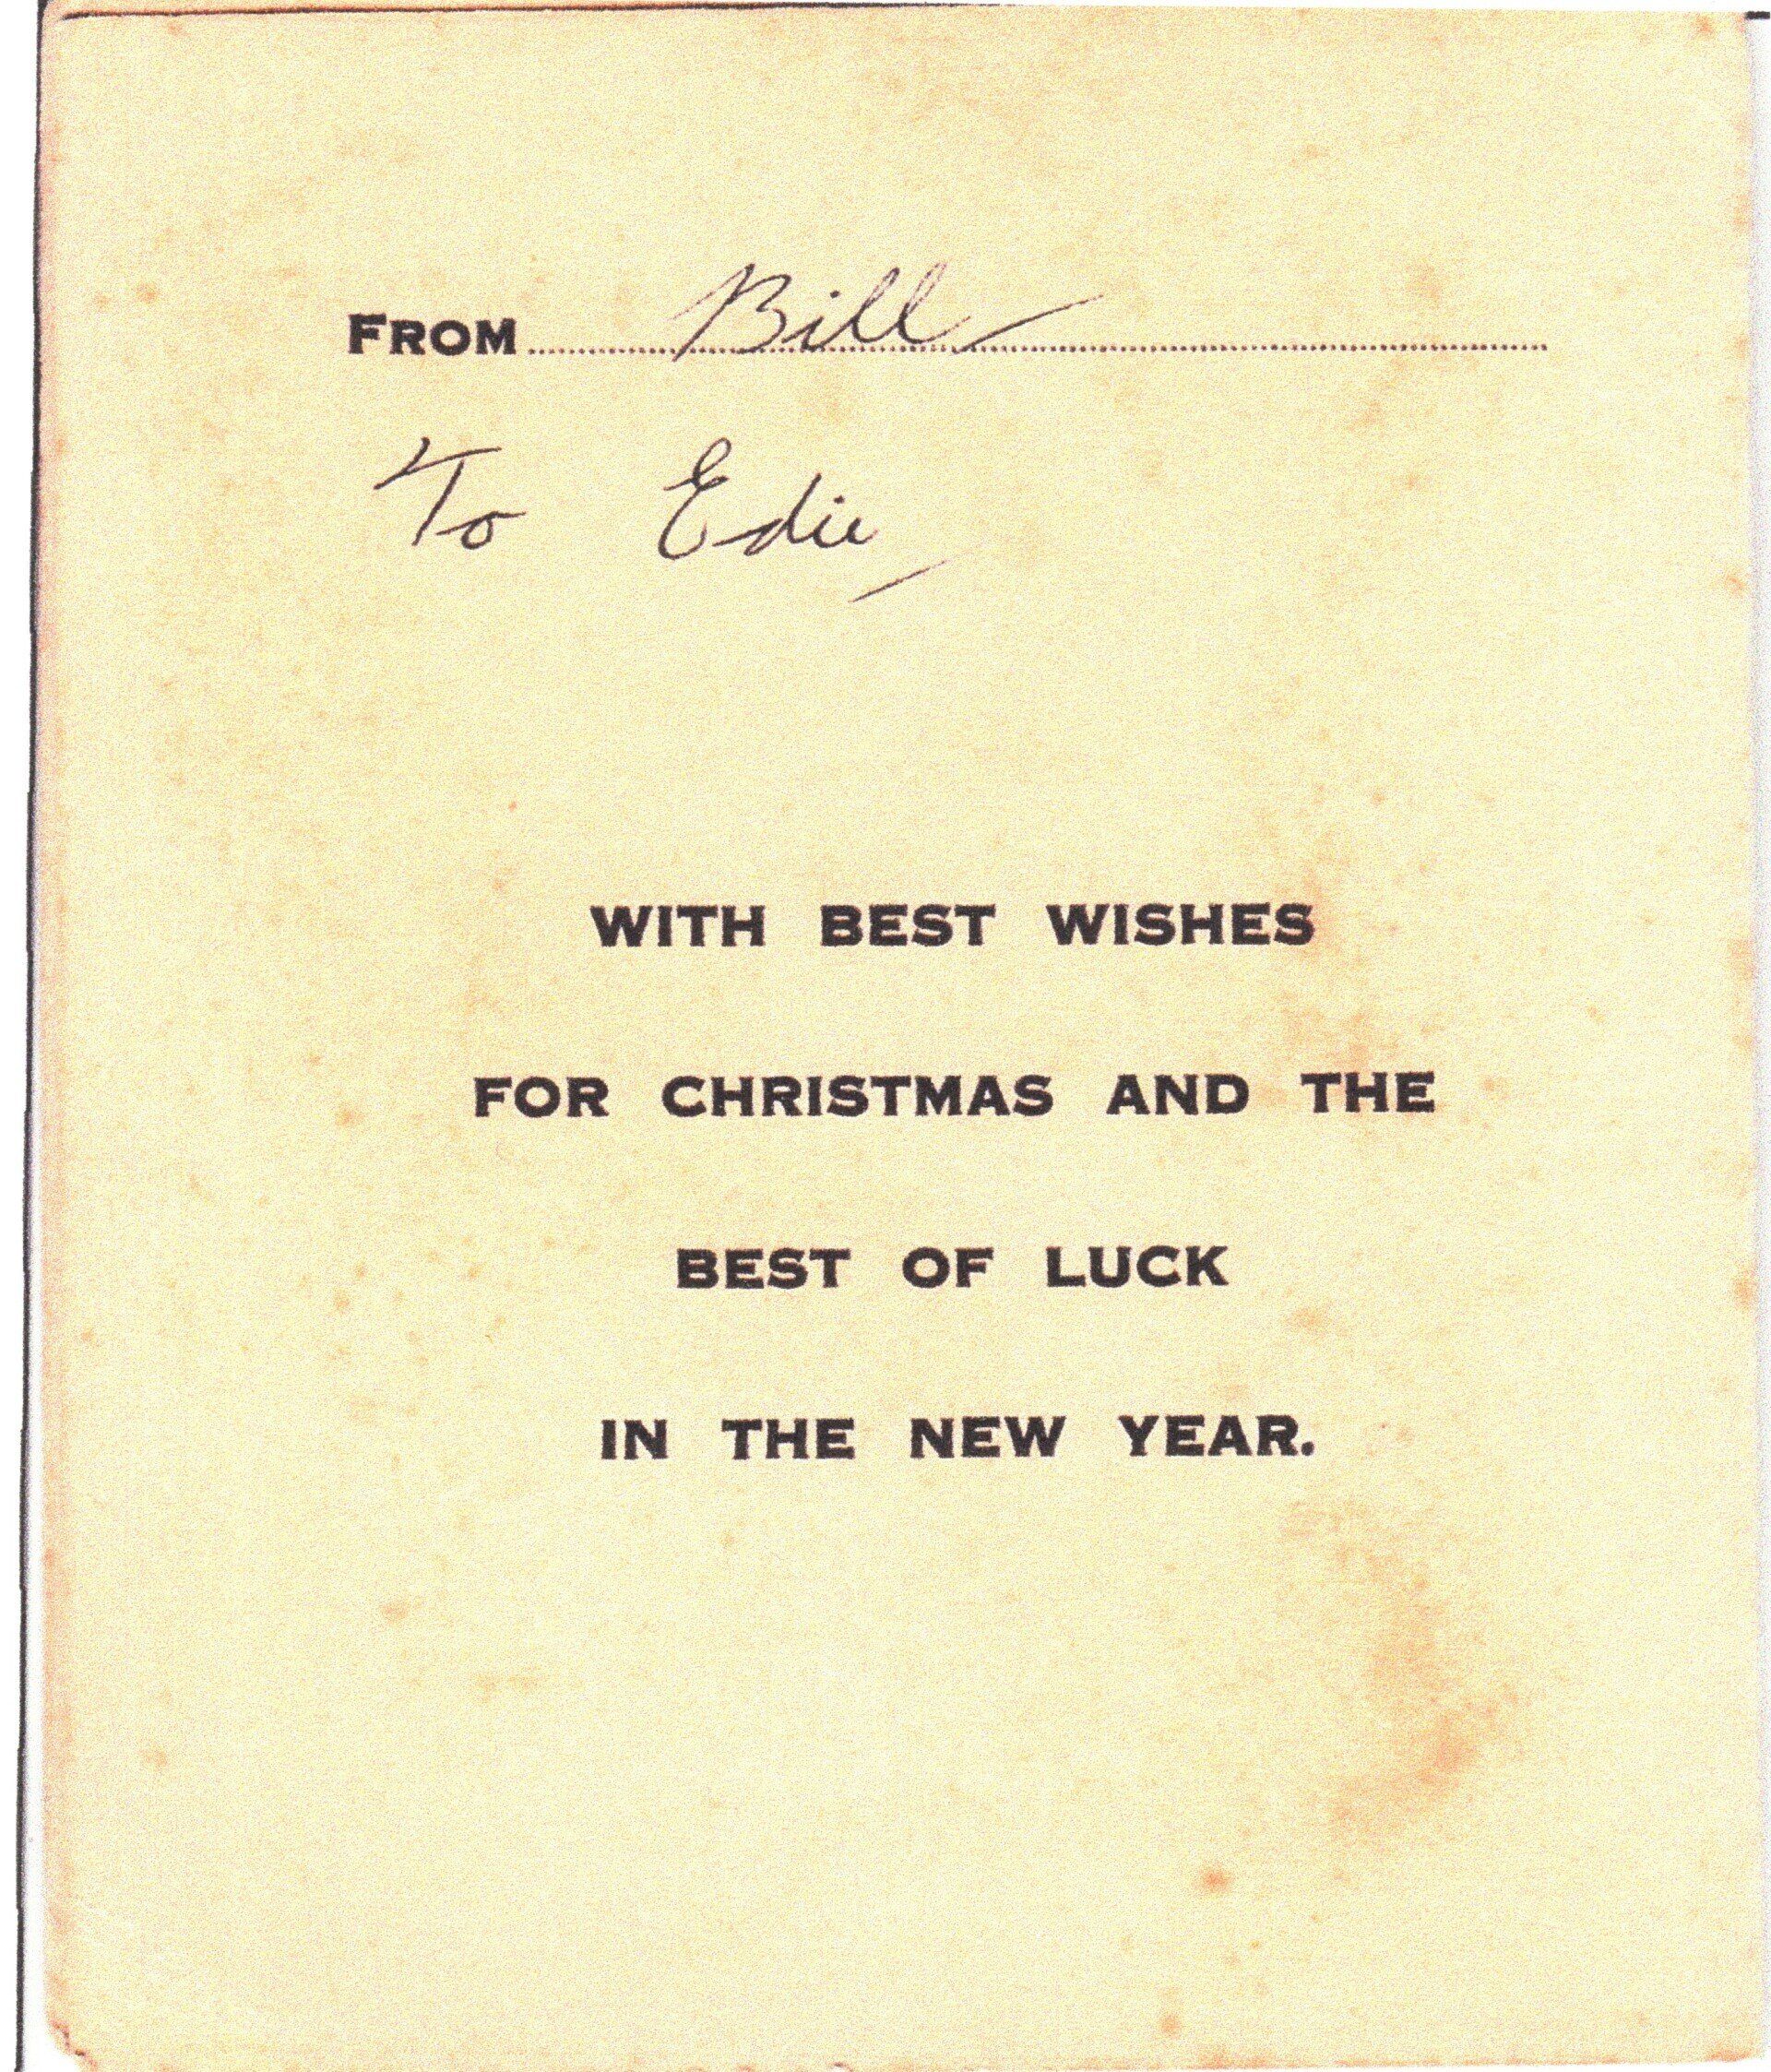 FROM Bill
To Edie
WITH BEST WISHES
FOR CHRISTMAS AND THE
BEST OF LUCK
IN THE NEW YEAR.